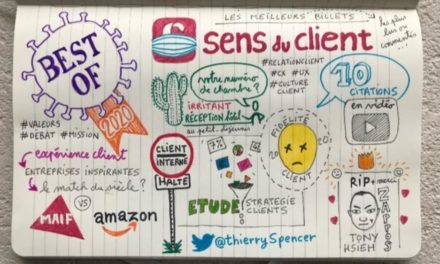 LES MEILLEURS BILLETS
les plus
lus ou
commentés...
BEST
OF
2020
sens du client
#VALEURS
#DEBAT #MISSION
votre numéro
de chambre?
IRRITANT
RÉCEPTION hôtel
au petit-déjeuner
#RELATIONCLIENT
#CX #UX
#CULTURE
CLIENT
10
CITATIONS
en vidéo
expérience client
ENTREPRISES INSPIRANTES
le match du siècle?
MAIF
VS
amazon
CLIENT
INTERNE
HALTE
7%
ETUDE
STRATEGIE
CLIENTS
FIDÉLITÉ
20
20
CLIENT
RIP + merci
ZAPPOS
TONY
HSIEH
@thierrySpencer